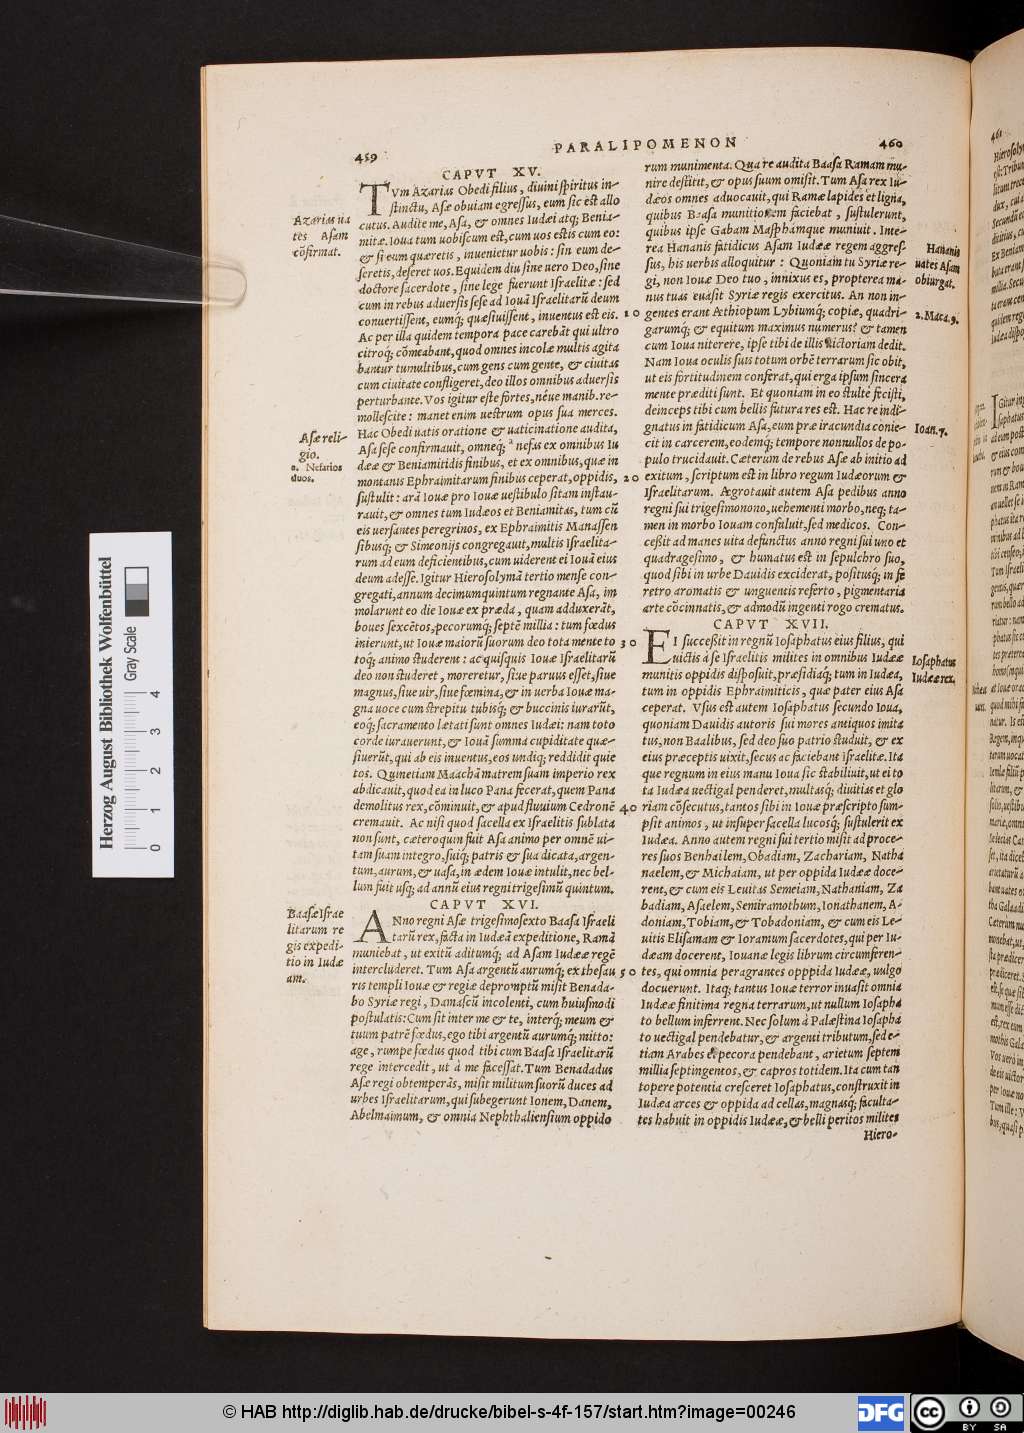 459
PARALIPOMENON
460
CAPVT XV.
TVm Azarias Obedi filius, diuini ſpiritus in-
ſtinctu, Aſæ obuiam egreſſus, eum ſic eſt allo
cutus. Audite me, Aſa, & omnes Iudæi atq; Benia-
mitæ. Ioua tum uobiſcum eſt, cum uos eſtis cum eo:
& ſi eum quæretis, inuenietur uobis: ſin eum de-
ſeretis, deſeret uos. Equidem diu ſine uero Deo, ſine
doctore ſacerdote, ſine lege fuerunt Iſraelitæ: ſed
cum in rebus aduerſis ſeſe ad Iouã Iſraelitarũ deum
conuertiſſent, eumq́; quæſiuiſſent, inuentus eſt eis.
Ac per illa quidem tempora pace carebãt qui ultro
citroq́; cõmeabant, quod omnes incolæ multis agita
bantur tumultibus, cum gens cum gente, & ciuitas
cum ciuitate confligeret, deo illos omnibus aduerſis
perturbante. Vos igitur eſte fortes, néue manib. re-
molleſcite: manet enim ueſtrum opus ſua merces.
Hac Obedi uatis oratione & uaticinatione audita,
Aſa ſeſe confirmauit, omneq́; ᵃ nefas ex omnibus Iu
dææ & Beniamitidis finibus, et ex omnibus, quæ in
montanis Ephraimitarum finibus ceperat, oppidis,
ſuſtulit: arã Iouæ pro Iouæ ueſtibulo ſitam inſtau-
rauit, & omnes tum Iudæos et Beniamitas, tum cũ
eis uerſantes peregrinos, ex Ephraimitis Manaſſen
ſibusq́; & Simeonijs congregauit, multis Iſraelita-
rum ad eum deficientibus, cum uiderent ei Iouã eius
deum adeſſe. Igitur Hieroſolymã tertio menſe con-
gregati, annum decimumquintum regnante Aſa, im
molarunt eo die Iouæ ex præda, quam adduxerãt,
boues ſexcẽtos, pecorumq́; ſeptẽ millia: tum fœdus
inierunt, ut Iouæ maiorũ ſuorum deo tota mente to
toq́; animo ſtuderent: ac quiſquis Iouæ Iſraelitarũ
deo non ſtuderet, moreretur, ſiue paruus eſſet, ſiue
magnus, ſiue uir, ſiue fœmina, & in uerba Iouæ ma-
gna uoce cum ſtrepitu tubisq́; & buccinis iurarũt,
eoq́; ſacramento lætati ſunt omnes Iudæi: nam toto
corde iurauerunt, & Iouã ſumma cupiditate quæ-
ſiuerũt, qui ab eis inuentus, eos undiq; reddidit quie
tos. Quinetiam Maachã matrem ſuam imperio rex
abdicauit, quod ea in luco Pana fecerat, quem Pana
demolitus rex, cõminuit, & apud fluuium Cedronẽ
cremauit. Ac niſi quod ſacella ex Iſraelitis ſublata
non ſunt, cæteroquin fuit Aſa animo per omnẽ ui-
tam ſuam integro, ſuiq́; patris & ſua dicata, argen-
tum, aurum, & uaſa, in ædem Iouæ intulit, nec bel-
lum fuit uſq; ad annũ eius regni trigeſimũ quintum.
CAPVT XVI.
ANno regni Aſæ trigeſimoſexto Baaſa Iſraeli
tarũ rex, facta in Iudæã expeditione, Ramã
muniebat, ut exitũ aditumq́; ad Aſam Iudææ regẽ
intercluderet. Tum Aſa argentũ aurumq́; ex theſau
ris templi Iouæ & regiæ depromptũ miſit Benada-
bo Syriæ regi, Damaſcũ incolenti, cum huiuſmodi
poſtulatis: Cum ſit inter me & te, interq́; meum &
tuum patrẽ fœdus, ego tibi argentũ aurumq́; mitto:
age, rumpe fœdus quod tibi cum Baaſa Iſraelitarũ
rege intercedit, ut à me faceſſat. Tum Benadadus
Aſæ regi obtemperãs, miſit militum ſuorũ duces ad
urbes Iſraelitarum, qui ſubegerunt Ionem, Danem,
Abelmaimum, & omnia Nephthalienſium oppido
Azarias ua
tes Aſam
cõfirmat.
Aſæ reli-
gio.
a. Nefarios
duos.
Baaſæ Iſrae
litarum re
gis expedi-
tio in Iudæ
am.
10
20
30
40
50
rum munimenta. Qua re audita Baaſa Ramam mu-
nire deſtitit, & opus ſuum omiſit. Tum Aſa rex Iu-
dæos omnes aduocauit, qui Ramæ lapides et ligna,
quibus Baaſa munitionem faciebat, ſuſtulerunt,
quibus ipſe Gabam Maſphámque muniuit. Inte-
rea Hananis fatidicus Aſam Iudææ regem aggreſ-
ſus, his uerbis alloquitur: Quoniam tu Syriæ re-
gi, non Iouæ Deo tuo, innixus es, propterea ma-
nus tuas euaſit Syriæ regis exercitus. An non in-
gentes erant Aethiopum Lybiumq́; copiæ, quadri-
garumq́; & equitum maximus numerus? & tamen
cum Ioua niterere, ipſe tibi de illis uictoriam dedit.
Nam Ioua oculis ſuis totum orbẽ terrarum ſic obit,
ut eis fortitudinem conferat, qui erga ipſum ſincera
mente præditi ſunt. Et quoniam in eo ſtultè feciſti,
deinceps tibi cum bellis futura res eſt. Hac re indi-
gnatus in fatidicum Aſa, eum præ iracundia conie-
cit in carcerem, eodemq́; tempore nonnullos de po-
pulo trucidauit. Cæterum de rebus Aſæ ab initio ad
exitum, ſcriptum eſt in libro regum Iudæorum &
Iſraelitarum. Aegrotauit autem Aſa pedibus anno
regni ſui trigeſimonono, uehementi morbo, neq; ta-
men in morbo Iouam conſuluit, ſed medicos. Con-
ceßit ad manes uita defunctus anno regni ſui uno et
quadrageſimo, & humatus eſt in ſepulchro ſuo,
quod ſibi in urbe Dauidis exciderat, poſitusq́; in fe
retro aromatis & unguentis referto, pigmentaria
arte cõcinnatis, & admodũ ingenti rogo crematus.
CAPVT XVII.
EI ſucceßit in regnũ Ioſaphatus eius filius, qui
uictis à ſe Iſraelitis milites in omnibus Iudææ
munitis oppidis diſpoſuit, præſidiaq́; tum in Iudæa,
tum in oppidis Ephraimiticis, quæ pater eius Aſa
ceperat. Vſus eſt autem Ioſaphatus ſecundo Ioua,
quoniam Dauidis autoris ſui mores antiquos imita
tus, non Baalibus, ſed deo ſuo patrio ſtuduit, & ex
eius præceptis uixit, ſecus ac faciebant Iſraelitæ. Ita
que regnum in eius manu Ioua ſic ſtabiliuit, ut ei to
ta Iudæa uectigal penderet, multasq́; diuitias et glo
riam cõſecutus, tantos ſibi in Iouæ præſcripto ſum-
pſit animos, ut inſuper ſacella lucosq́; ſuſtulerit ex
Iudæa. Anno autem regni ſui tertio miſit ad proce-
res ſuos Benhailem, Obadiam, Zachariam, Natha
naelem, & Michaiam, ut per oppida Iudææ doce-
rent, & cum eis Leuitas Semeiam, Nathaniam, Za
badiam, Aſaelem, Semiramothum, Ionathanem, A-
doniam, Tobiam, & Tobadoniam, & cum eis Le-
uitis Eliſamam & Ioramum ſacerdotes, qui per Iu-
dæam docerent, Iouanæ legis librum circumferen-
tes, qui omnia peragrantes opppida Iudææ, uulgo
docuerunt. Itaq; tantus Iouæ terror inuaſit omnia
Iudææ finitima regna terrarum, ut nullum Ioſapha
to bellum inferrent. Nec ſolum à Palæſtina Ioſapha
to uectigal pendebatur, & argenti tributum, ſed e-
tiam Arabes ei pecora pendebant, arietum ſeptem
millia ſeptingentos, & capros totidem. Ita cum tan
topere potentia creſceret Ioſaphatus, conſtruxit in
Iudæa arces & oppida ad cellas, magnasq́; faculta-
tes habuit in oppidis Iudææ, & belli peritos milites
Hiero-
Hananis
uates Aſam
obiurgat.
2. Maca. 9.
Ioan. 7.
Ioſaphatus
Iudææ rex.
461
Herzog August Bibliothek Wolfenbüttel
Gray Scale
0 1 2 3 4
© HAB http://diglib.hab.de/drucke/bibel-s-4f-157/start.htm?image=00246
DFG
cc
BY SA